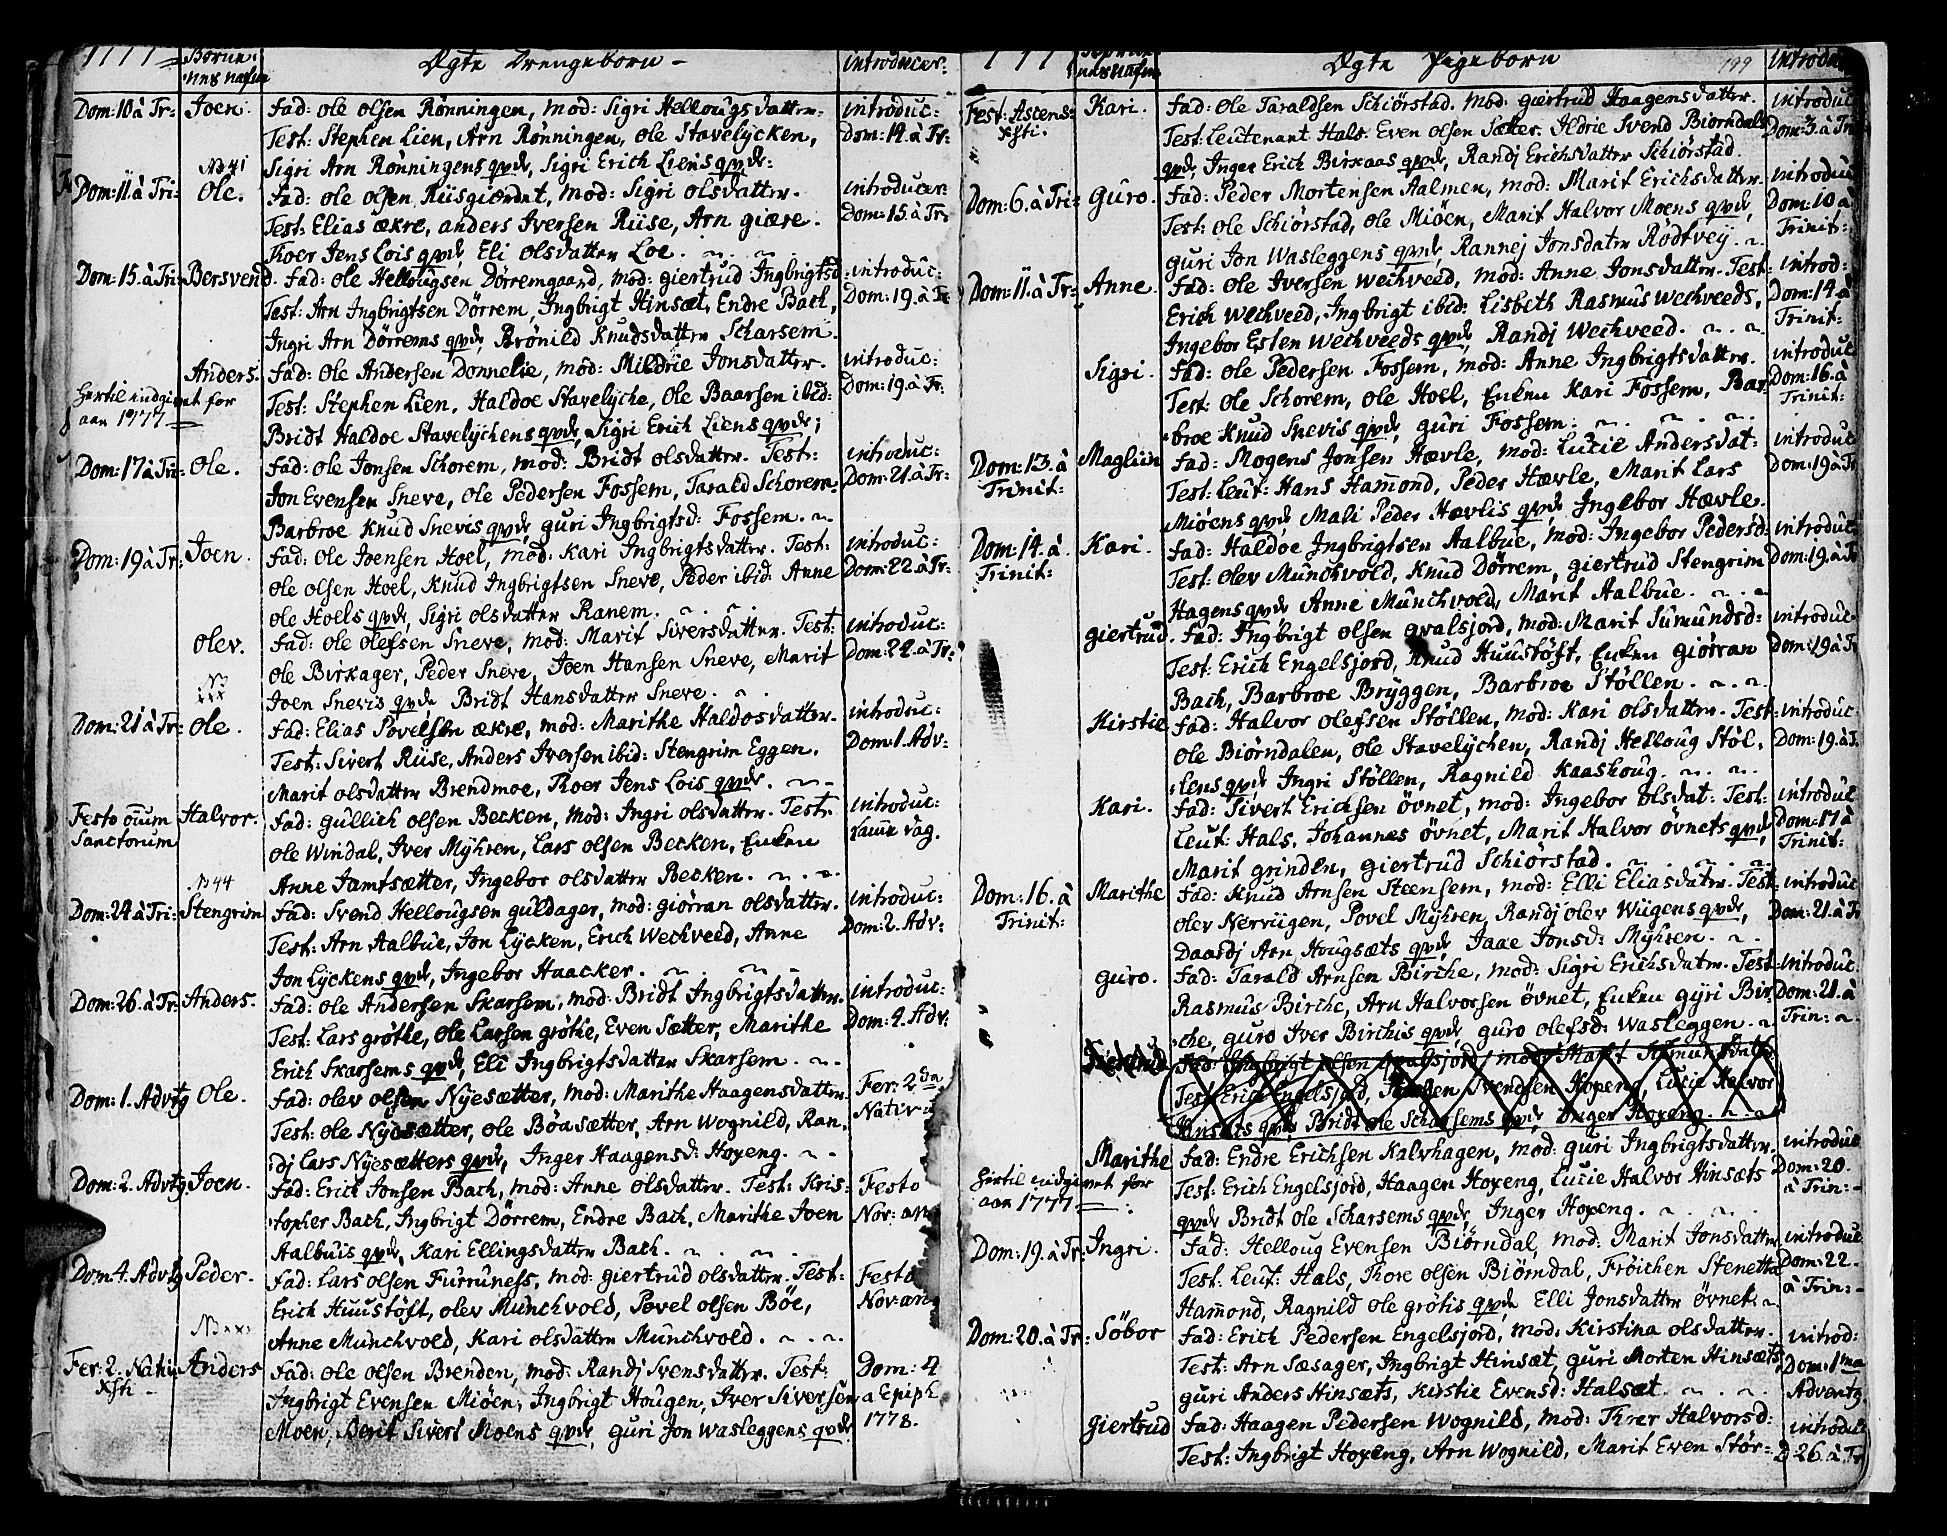 1777 Børne: Ægte Drengebørn - introducer:
nes nafne
Dom: 10 à Tr: Joen. Fad: Ole Olsen Rönningen, mod: Sigri Hellougs datter. introduc:
Test: Stephen Lien, Arn Rönningen, Ole Stavelÿcken, Dom: 14. à Tr:
Sigri Arn Rönningens qvde, Sigri Erich Liens qvde:
No 41
Dom: 11. à Tri: Ole. Fad: Ole Olsen Riisgiærdet, mod: Sigri olsdatter. introducer
Test: Elias ækre, anders Iversen Riise, Arn giære. Dom: 15. à Tr:
Thoer Jens Lois qvde, Eli olsdatter Loe.
Dom: 15. à Tri: Bersvend. Fad: Ole Hellougsen Dörremgaard, mod: giertrud Ingbrigtsd: introduc:
Test: Arn Ingbrigtsen Dörrem, Ingbrigt Hinsæt, Endre Bach, Dom: 19. à Tr:
Ingri Arn Dörrems qvde, Brönild Knudsdatter Scharsem.
Anders. Fad: Ole Andersen Donnelie, mod: Mildrie Jonsdatter. introduc:
Hertil indgivet for Test: Stephen Lien, Haldoe Stavelÿche, Ole Baarsen ibid: Dom: 19. à Tr:
aar 1777 Bridt Haldoe Stavelÿchens qvde, Sigri Erich Liens qvde;
Dom: 17 à Tri: Ole. Fad: Ole Jonsen Schorem, mod: Bridt olsdatter. Test: introduc:
Jon Evensen Sneve, Ole Pedersen Fossem, Tarald Schorem Dom: 21. à Tr:
Barbroe Knud Snevis qvde, guri Ingbrigtsd: Fossem.
Dom: 19 à Tr: Joen. Fad: Ole Joensen Hoel, mod: Kari Ingbrigtsdatter. Test: introduc:
Ole olsen Hoel, Knud Ingbrigtsen Sneve, Peder ibid: Anne Dom: 22. à Tr:
Ole Hoells qvde, Sigri olsdatter Ranem.
olev. Fad: Ole Olefsen Sneve, mod: Marit Siversdatter. Test: introduc:
Ole Birkager, Peder Sneve, Joen Hansen Sneve, Marit Dom: 22. à Tr:
Joen Snevis qvde Bridt Hansdatter Sneve.
Dom: 21 à Tr: Ole. Fad: Elias Povelsen ækre, mod: Marithe Haldosdatter. introduc:
Test: Sivert Riise, Anders Iversen ibid: Stengrim Eggen, Dom: 1. Adv:
Marit olsdatter Brendmoe, Thoer Jens Lois qvde.
Festo om̅ium Halvor. Fad: gullich olsen Becken, mod: Ingri olsdatter. Test: introduc:
Sanctorum Ole Windal, Iver Mÿhren, Lars olsen Becken, Enken samme dag.
Anne Jamtsætter, Ingebor olsdatter Becken.
No 44
Dom: 24 à Tri: Stengrim Fad: Svend Hellougsen guldager, mod: giörran olsdatter. introduc:
Test: Arn Aalbue, Jon Lÿcken, Erich Wechveed, Anne Dom: 2. Adv:
Jon Lÿckens qvde, Ingebor Haacker.
Dom: 26. à Tr: Anders. Fad: Ole Andersen Skarsem, mod: Bridt Ingbrigtsdatter. introduc:
Test: Lars gröthe, Ole Larsen gröthe, Even Sætter, Marithe Dom: 4. Adv:
Erich Skarsems qvde, Eli Ingbrigtsdatter Skarsem.
Dom: 1. Advtg Ole. Fad: olev olsen Nÿesætter, mod: Marithe Haagensdatter. Fer: 2da
Test: Ole Nÿesætter, ole Böasætter, Arn Wognild, Ran, Nativ:
dj Lars Nÿesætters qvde, Inger Haagensd: Hoxeng.
Dom: 2. Advtg. Joen. Fad: Erich Jonsen Bach, mod: Anne olsdatter. Test: Kris: Festo
topher Bach, Ingbrigt Dörrem, Endre Bach, Marithe Joen Nov: an
Aalbuis qvde, Kari Ellingsdatter Bach.
Dom 4. Advtg Peder. Fad: Lars olsen Furruness, mod: giertrud olsdatter. Test: Festo
Erich Huustöft, olev Munchvold, Povel olsen Böe, Nov: an
Anne Munchvold, Kari olsdatter Munchvold.
Fer: 2. Nativ: Anders Fad: Ole olsen Brenden, mod: Randj Svensdatter. Test: Dom: 4
Xsti Ingbrigt Evensen Miöen, Ingbrigt Hougen, Iver Siversen a Epiph
Moen, Berit Sivert Moens qvde, guri Jon Wasleggens qvde 1778.
nes nafne Ægte Pigebørn 199 introduc
Fest: Ascens: Kari. Fad: Ole Taraldsen Schiörstad. mod: giertrud Haagensdatter. introduc
Xsti. Test: Leutenant Hals. Even olsen Sætter. Ildrie Svend Biorndals Dom: 3. à Tri
qvde, Inger Erich Birkaas qvde, Randj Erichsdatter Schiörstad.
Dom: 6. à Tri: Guro. Fad: Peder Mortensen Aalmen, mod: Marit Erichsdatter. introduc
Test: Ole Schiörstad, Ole Miöen, Marit Halvor Moens qvde, Dom: 10 à
guri Jon Wasleggens qvde, Rannej Jonsdatr Rodtveÿ. Trinit:
Dom: 11. à Tr: Anne. Fad: Ole Iversen Wechveed, mod: Anne Jonsdatter. Test: introd:
Erich Wechveed, Ingbrigt ibid: Lisbeth Rasmus Wechveeds, Dom: 14. à
Ingebor Esten Wechveeds qvde, Randj Wechveed. Trinit:
Sigri. Fad: Ole Pedersen Fossem, mod: Anne Ingbrigtsdatter. introduc
Test: Ole Schorem, Ole Hoel, Enken Kari Fossem, Bar- Dom: 16. à
broe Knud Snevis qvde, guri Fossem. Trinit:
Dom: 13. à Magliin Fad: Mogens Jonsen Hævle, mod: Lucie Andersdat: introduc
Trinit: Test: Leut: Hans Ham̅ond, Peder Hævle, Marit Lars Dom: 19 à Tr
Miöens qvde, Mali Peder Hævlis qvde, Ingebor Hævle.
Dom: 14. à Kari. Fad: Haldoe Ingbrigtsen Aalbue, mod: Ingebor Pedersd: introduc
Trinit: Test: Olev Munchvold, Knud Dörrem, giertrud Stengrim Dom: 19. à Tr
Hagens qvde, Anne Munchvold, Marit Aalbue.
giertrud. Fad: Ingbrigt olsen qvalsjord, mod: Marit Sumundsd: introduc
Test: Erich Engelsjord, Knud Huustöft, Enken giörran Dom: 19 à Tr
Bach, Barbroe Brÿggen, Barbroe Stöllen.
Kirstie Fad: Halvor Olefsen Stöllen, mod: Kari olsdatter. Test: introduc:
Ole Biörndalen, Ole Stavelÿchen, Randj Helloug Stöl, Dom: 19. à T.
lens qvde, Ingri Stöllen, Ragnild Kaashoug.
Kari. Fad: Sivert Erichsen övnet, mod: Ingebor olsdat: Test: introduc
Leut: Hals, Johannes övnet, Marit Halvor övnets qvde, Dom: 17 à
Marit grinden, giertrud Schiörstad. Trinit:
Dom: 16. à Marithe Fad: Knud Arnsen Steensem, mod: Elli Eliasdatr. Test introduc
Trinit: Olev Nerviigen, Povel Mÿhren, Randj olev Wiigens qvde, Dom: 21. à Tr
Daardj Arn Hougsæts qvde, Jaae Jonsd: Mÿhren.
guro. Fad: Tarald Arnsen Birche, mod: Sigri Erichsdatr. Test: introduc.
Rasmus Birche, Arn Halvorsen övnet, Enken gÿri Bir, Dom: 21. à
che, guro Iver Birchis qvde, guro olefsd: Wasleggen. Trin:
Fad: Ingbrigt olsen qvalsjord, mod: Marit Sumundsdatr
Test: Erich Engelsjord, Haagen Svendsen Hoxeng, Lucie Halvor
Hinsæts qvde, Bridt Ole Scharsems qvde, Inger Hoxeng.
Marithe Fad: Endre Erichsen Kalvhagen, mod: guri Ingbrigtsdatter. introduc
Hertil indgivet for Test: Erich Engelsjord, Haagen Hoxeng, Lucie Halvor Hinsæts Dom: 20.
aar 1777. qvde Bridt Ole Scharsems qvde, Inger Hoxeng. à Trin:
Dom: 19. à Tr: Ingri. Fad: Helloug Evensen Biörndal, mod: Marit Jonsdatter introduc
Test: Leut: Hals, Thore olsen Biörndal, Fröichen Stenetta Dom: 22.
Ham̅ond, Ragnild Ole grötis qvde Elli Jonsdatter övnet. à Trin:
Dom: 20. à Tr: Söbor Fad: Erich Pedersen Engelsjord, mod: Kirstina olsdatter. introd:
Test: Arn Sæsager, Ingbrigt Hinsæt, guri Morten Hinsæts, Dom: 1ma
guri Anders Hinsæts, Kirstie Evensd: Halsæt. Adventg.
Giertrud Fad: Haagen Pedersen Wognild, mod: Thrær Halvorsd: introduc
Test: Ingbrigt Hoxeng, Arn Wognild, Marit Even Stör- D 26. à Tr